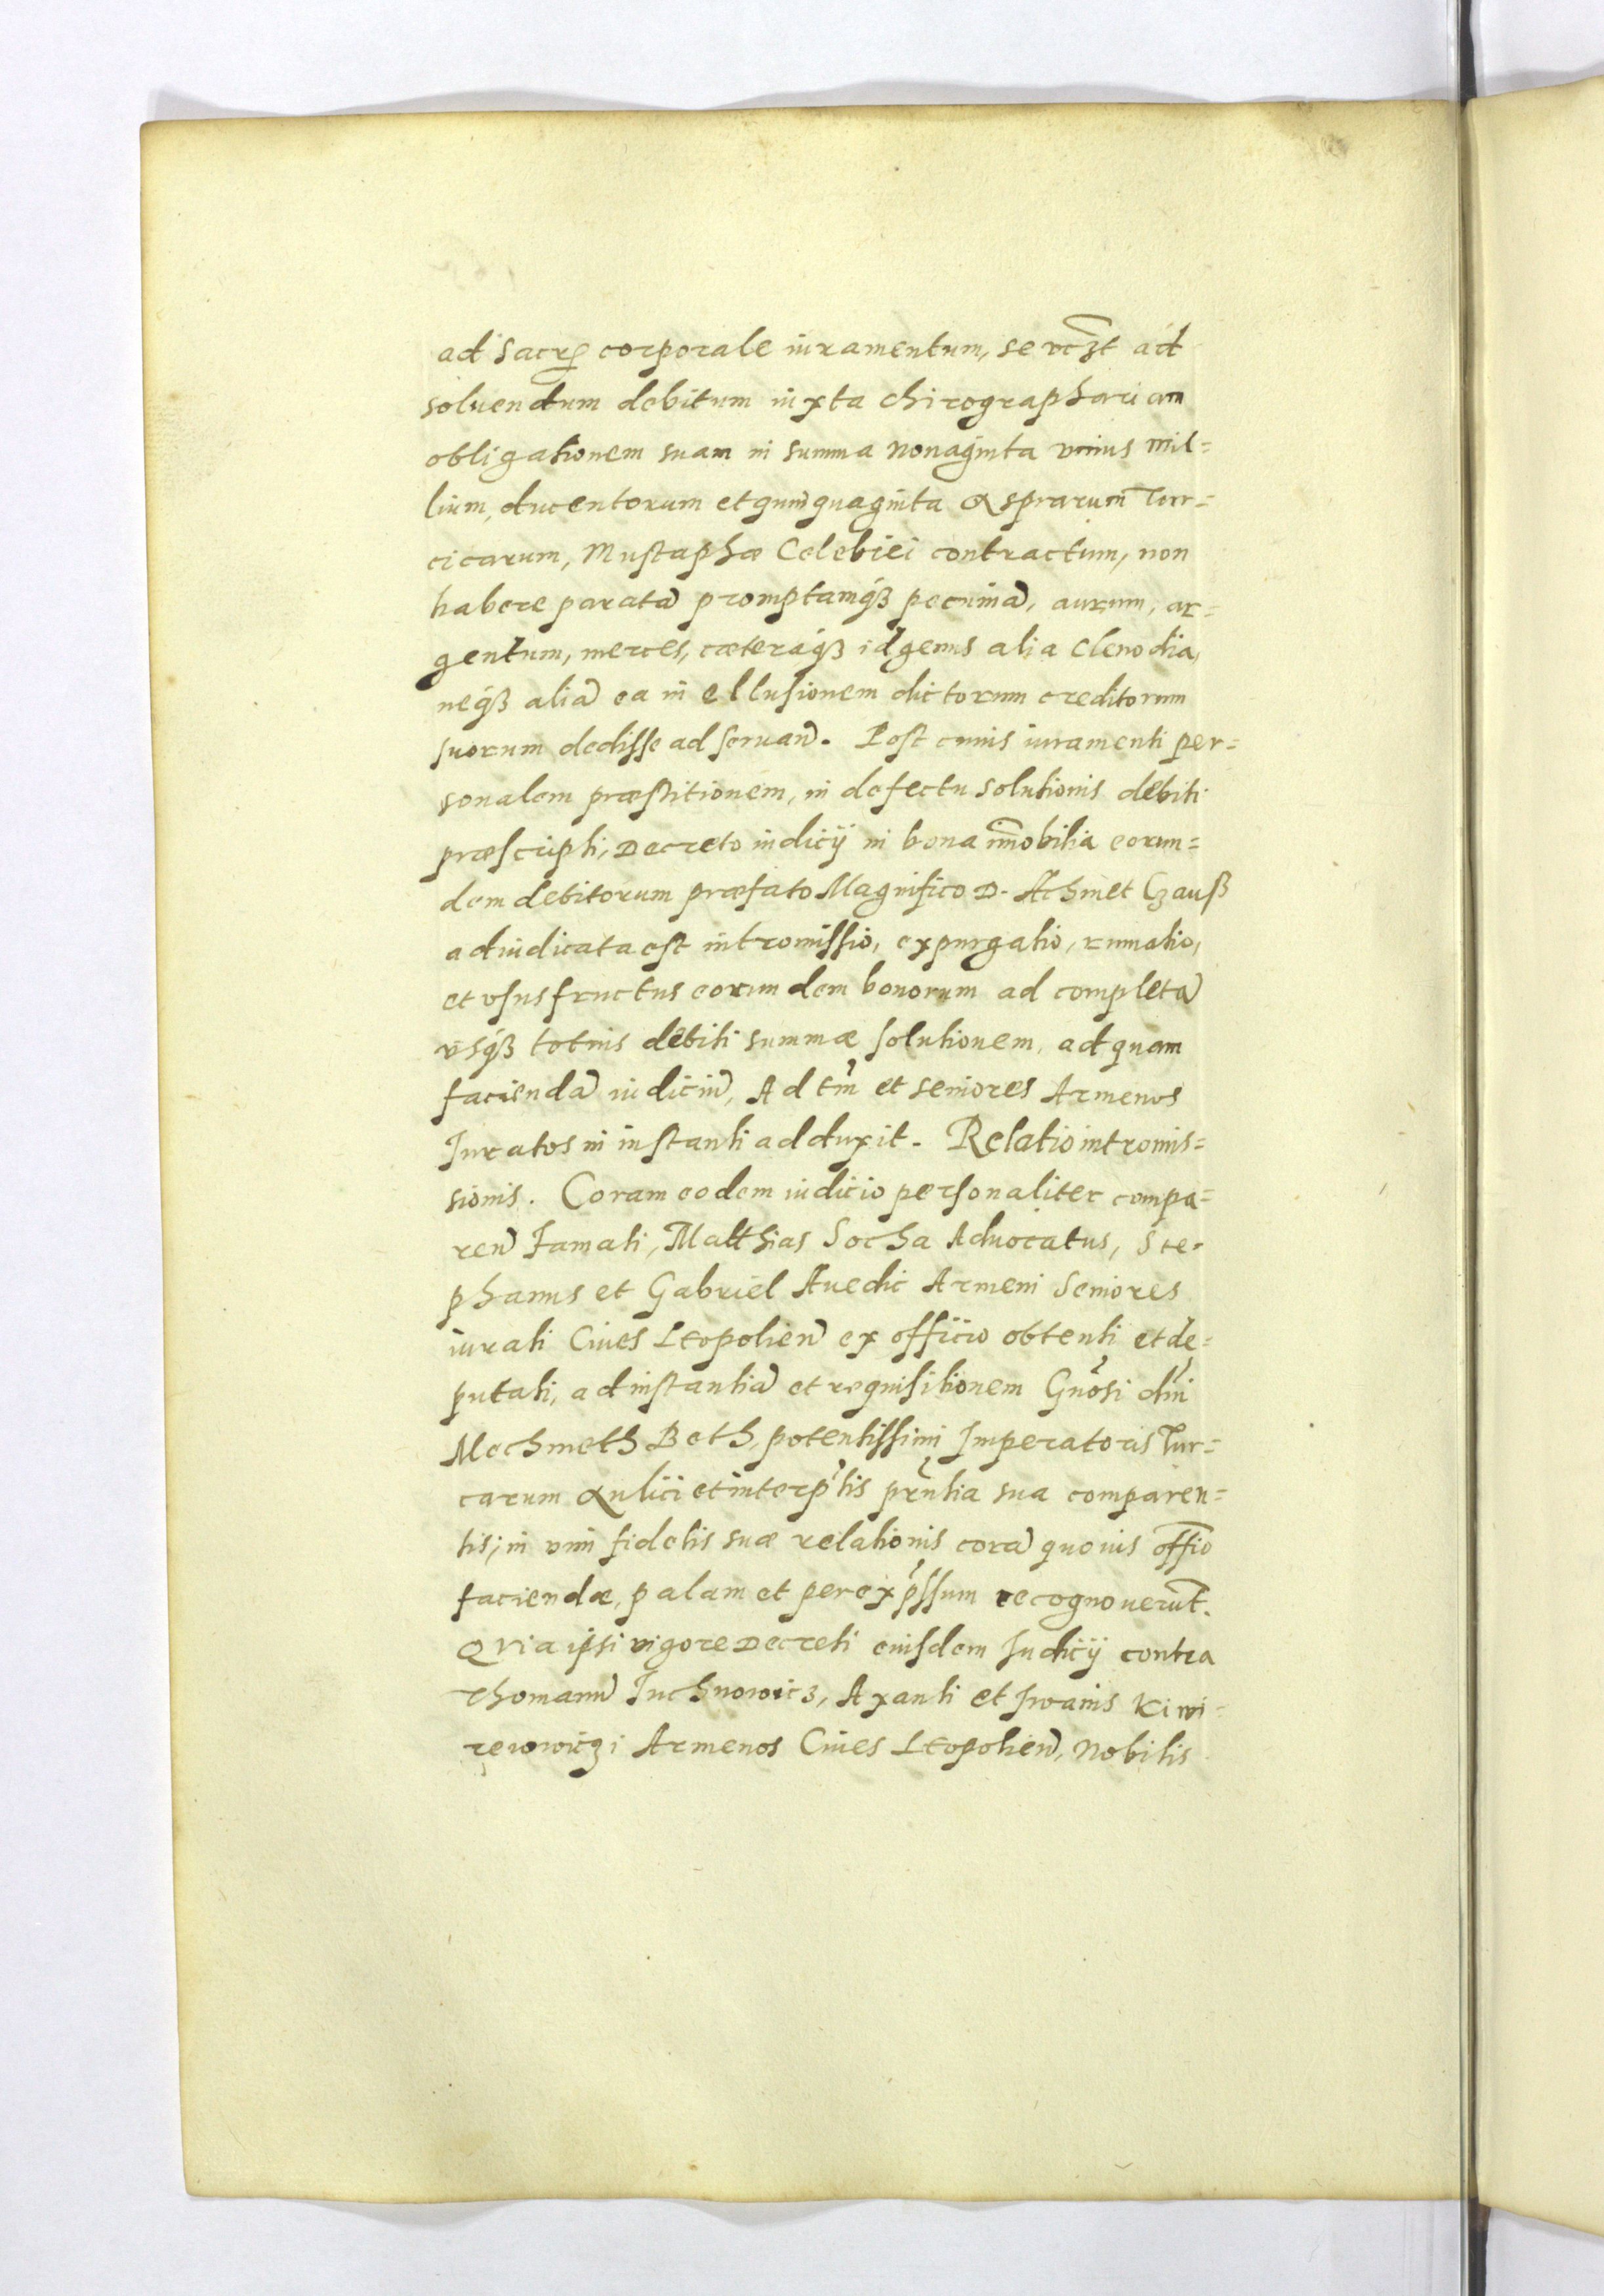 ad sacrũ corporale iuramentum, se vcꝫt ad
soluendum debitum iuxta chirographariam
obligationem suam in summa nonaginta vnius mil=
lium, ducentorum et quinquaginta asprarum Tur=
cicarum, Mustaphæ Celebiei contractum, non
habere paratã promptamqꝫ pecuniã, aurum, ar=
gentum, merces, cæteraqꝫ id genus alia clenodia,
neqꝫ aliã ea in ellusionem dictorum creditorum
suorum dedisse ad seruanð. Post cuius iuramenti per=
sonalem præstitionem, in defectu solutionis debiti
præscripti, Decreto iudicij in bona im̃obilia eorun=
dem debitorum præfato Magnifico D. Achmet Czauß
adiudicata est intromissio, expurgatio, rumatio,
et vsusfructus eorundem bonorum ad completã
vsqꝫ totius debiti summæ solutionem, ad quam
faciendã iudiciũ, Adt̃m et seniores Armenos
Iuratos in instanti adduxit. Relatio intromis=
sionis. Coram eodem iudicio personaliter compa=
ren̄ Famati, Matthias Socha Aduocatus, Ste=
phanus et Gabriel Auedic Armeni Seniores
iurati Ciues Leopolien̄ ex officio obtenti et de=
putati, ad instantiã et requisitionem Gñosi dñi
Mechmeth Beth, potentissimi Imperatoris Tur=
carum Aulici et interp̃tis prñtia sua comparen=
tis, in vim fidelis suæ relationis corã quouis offio
faciendæ, palam et per exp̃ssum recognouerũt.
Qvia ipsi vigore Decreti eiusdem Iudicij contra
Thomann̄ Iuchnowicz, Axanti et Iwanis Kiwi=
rewowiczi Armenos Ciues Leopolien̄, Nobilis